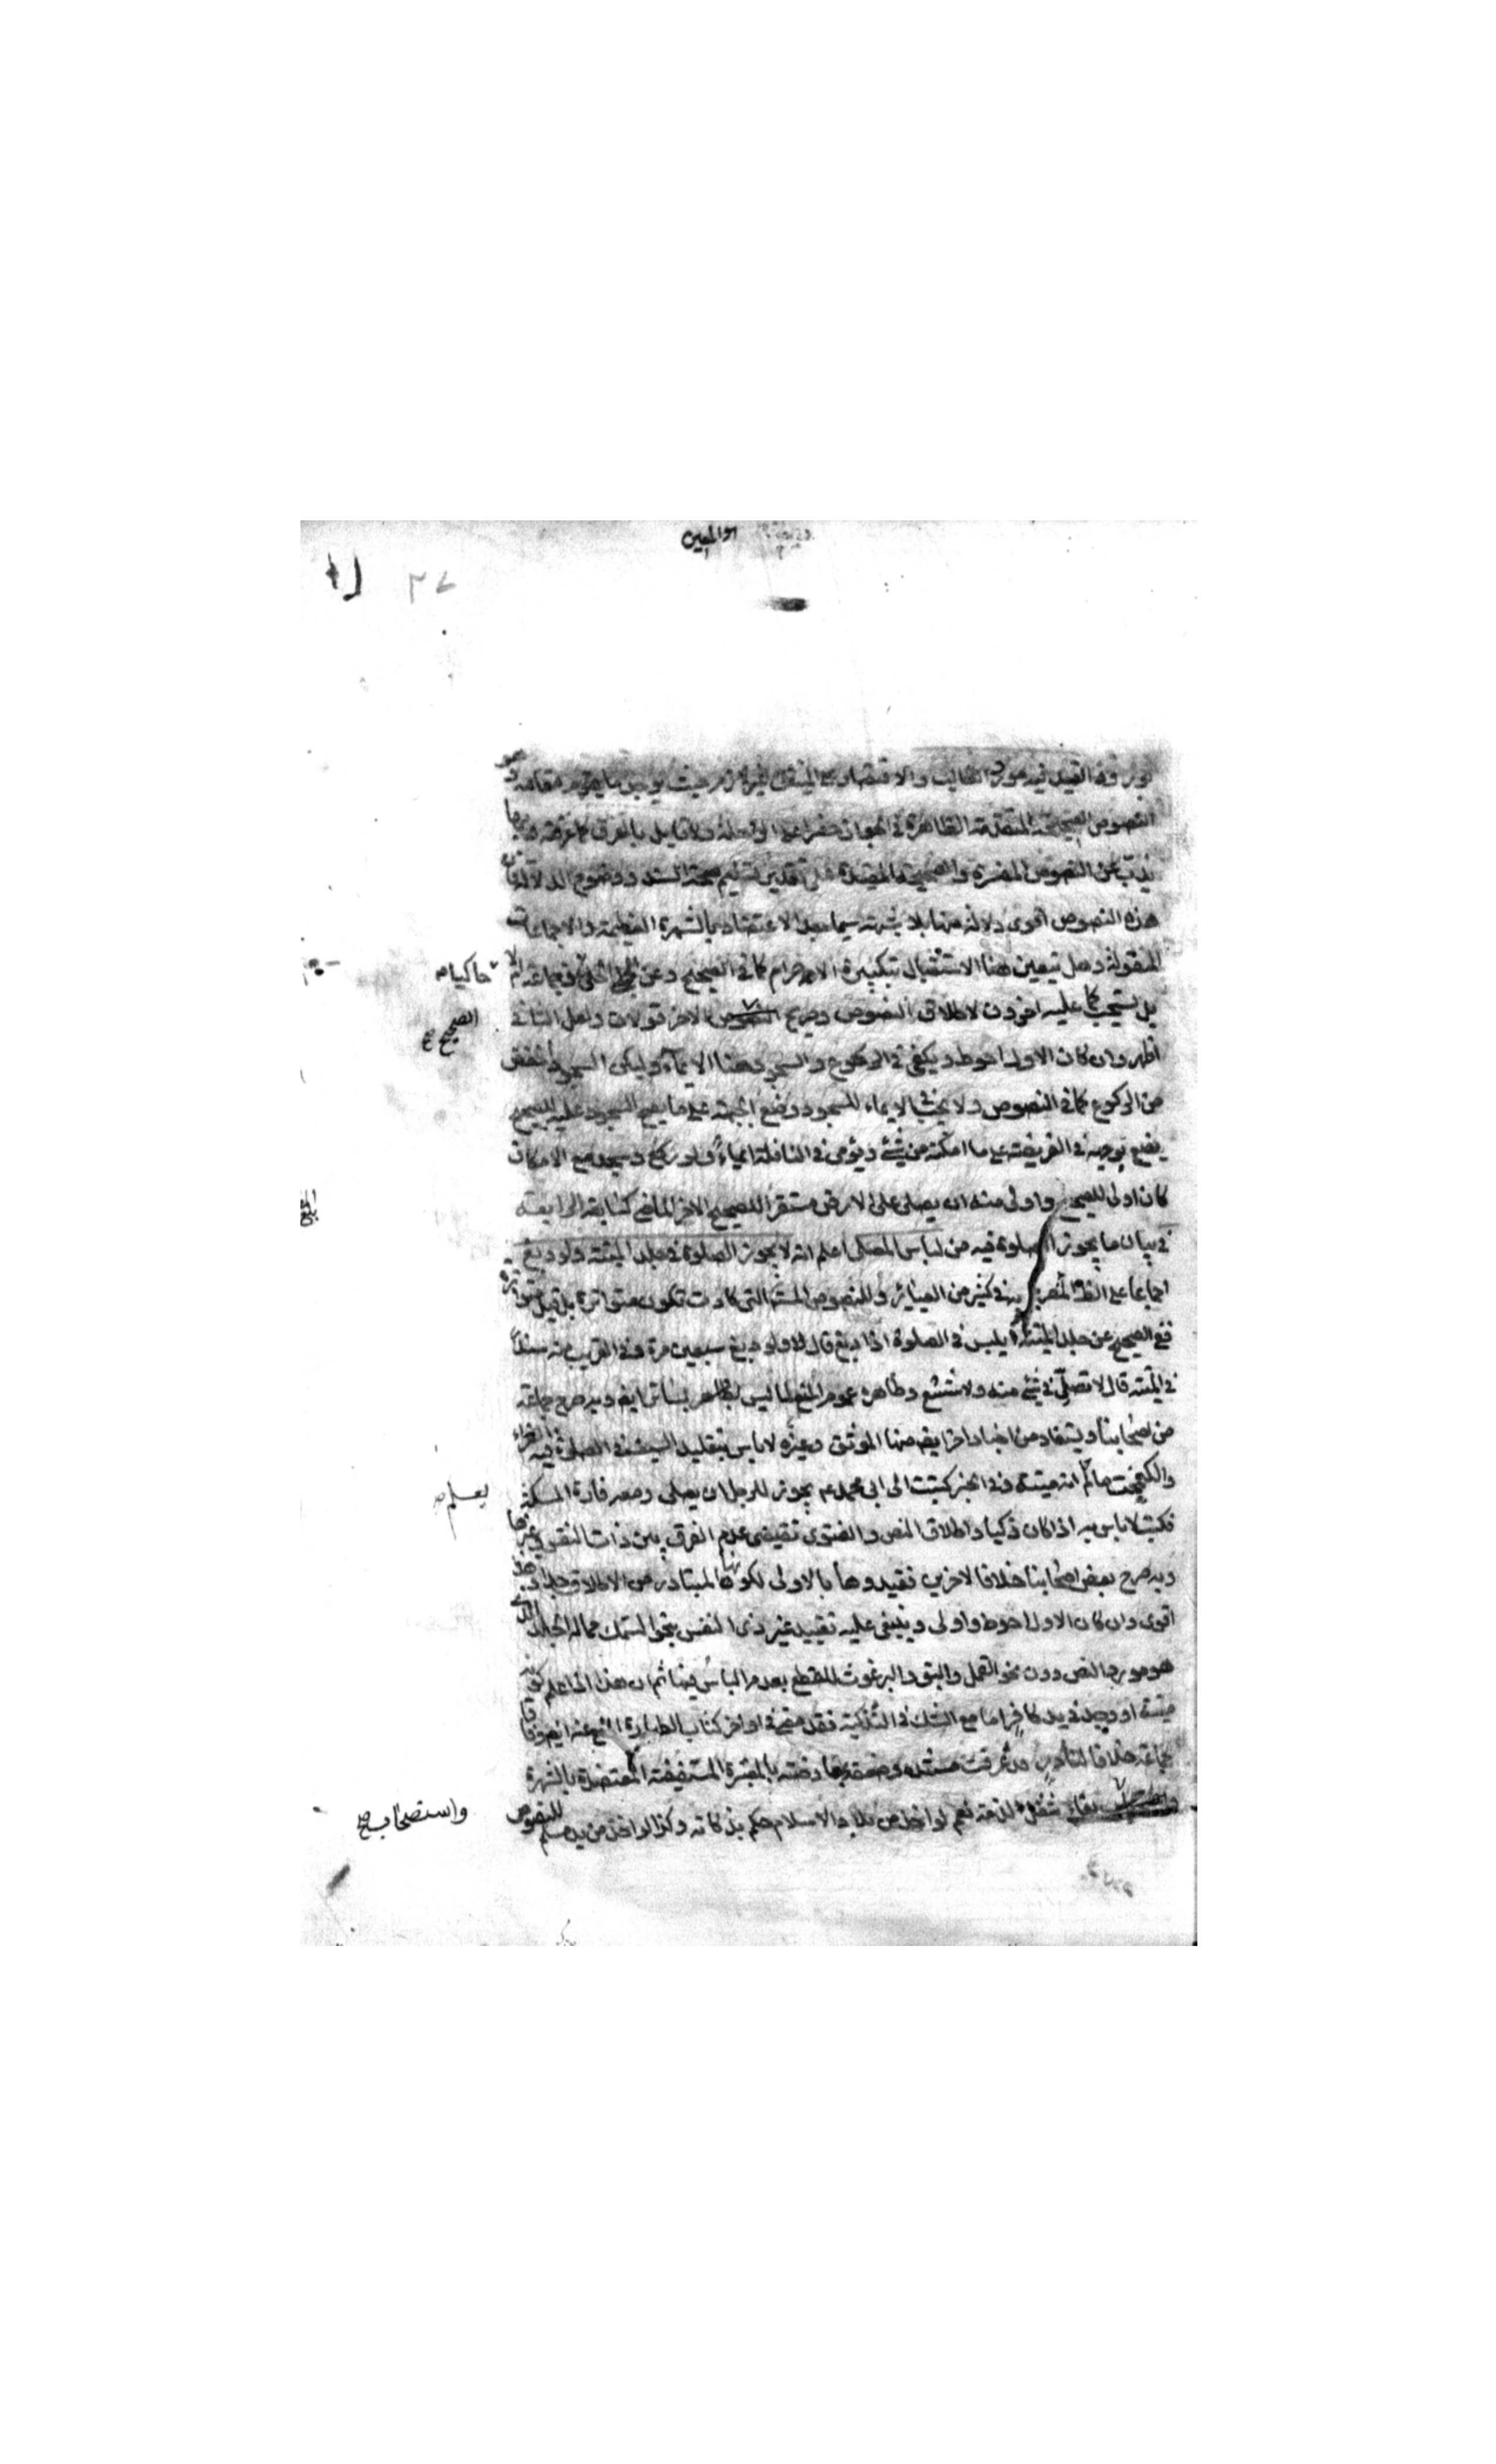 هو المعین
٣٧
القيد فيه مورد الغالب والاقتصار على المتيقن غير لازم حيث يوجد ما يقوم مقامه وهو
النصوص الصحيحة المتقدمة الظاهرة في الجواز حضرا على الراحلة ولا قايل بالفرق كما عرفته وبها
يذب عن النصوص المفسرة والصحيحة المقيدة على تقدير تسليم صحة السند ووضوح الدلالة فان
هذه النصوص اقوى دلالة منها بلا شبهة سيما بعد الاعتضاد بالشهرة العظيمة والاجماعات
المنقولة وهل يتعين هنا الاستقبال بتكبيرة الاحرام كما في الصحيح وعن الحلي جماعة ام لا
حاكيا
بل يستحب كما عليه اخرون لاطلاق النصوص وصريح الاخر قولان ولعل الثاني
الصحيح
اظهر وان كان الاول احوط ويكفي في الركوع والسجود هنا الايماء وليكن السجود اخفض
من الركوع كما في النصوص ولا يجب في الايماء للسجود وضع الجبهة على ما يصح السجود عليه للصحيح
يضع بوجهه في الفريضة على ما امكنه من شيء ويؤمي في النافلة ايماء ولو ركع وسجد مع الامكان
كان اولى للصحيح واولى منه ان يصلي على الارض مستقرا للصحيح الاخر الماضي كسابقه الرابعة
في بيان ما يجوز الصلوة فيه من لباس المصلي اعلم انه لا يجوز الصلوة في جلد الميتة ولو دبغ
اجماعا على الظ المصرح به في كثير من العبائر وللنصوص المستفيضة التي كادت تكون متواترة بل قيل متواترة
ففي الصحيح عن جلد الميتة ايلبس في الصلوة اذا دبغ قال لا ولو دبغ سبعين مرة وفي القريب منه سندا
في الميتة قال لا تصل في شيء منه ولا شسع وظاهره عموم المنع لما ليس بساتر ايضا وبه صرح جماعة
من اصحابنا ويستفاد من اخبار اخر ايضا منها الموثق وغيره لا باس بتقليد السيف في الصلوة فيه الفراء
والكيمخت ما لم انه ميتة وفي الخبر كتبت الى ابي محمد ع يجوز للرجل ان يصلي ومعه فارة المسك
يعلم
فكتب لا باس به اذا كان ذكيا واطلاق النص والفتوى تقتضي عدم الفرق بين ذات النفس وغيرها
وبه صرح بعض اصحابنا خلافا لاخرين فقيدوها بالاولى لكونها المتبادر من الاطلاق جدا وهذا
اقوى وان كان الاول احوط واولى وينبغي عليه تقييد غير ذي النفس بنحو السمك مما له الجلد الذي
هو مورد النص دون نحو القمل والبق والبرغوث للقطع بعدم الباس فيها ثم ان هذا اذا علم كونه
ميتة او وجد في يد كافر اما مع الشك في التذكية فقد مضى في اواخر كتاب الطهارة المنع عنه ايضا وفاقا
جماعة خلافا لنادر قد عرفت مستنده وضعفه بمعارضته بالمعتبرة المستفيضة المعتضدة بالشهرة
بقاء شغل الذمة نعم لو اخذ من بلاد الاسلام حكم بذكاته وكذا لو اخذ من يد مسلم للنصوص
واستصحاب